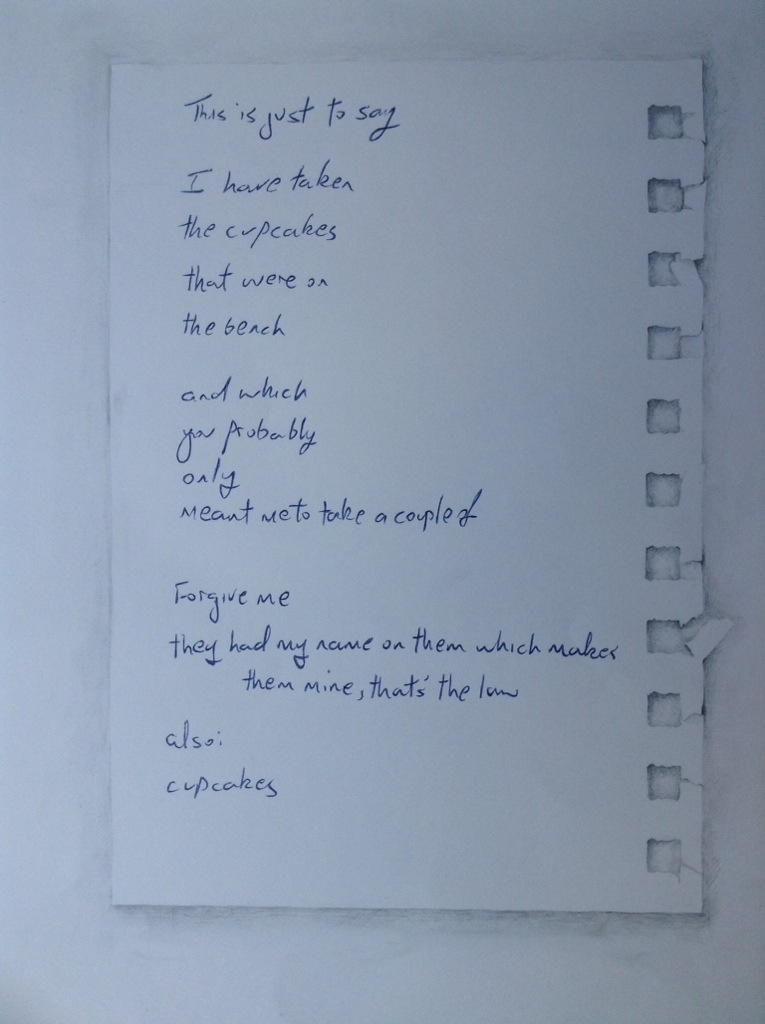 This is just to say
I have taken
the cupcakes
that were on
the bench
and which
you probably
only
meant me to take a couple of
Forgive me
they had my name on them which makes
them mine, that's the law
also:
cupcakes